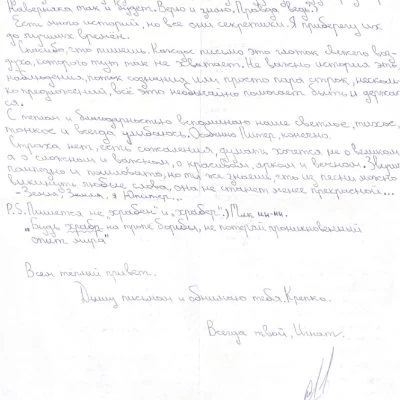 Наверняка так и будет. Верю и знаю. Правда ведь?
Есть много историй, но все они секретики. Я приберегу их
до лучших времён.
Спасибо, что пишешь. Каждое письмо это глоток свежего воз-
духа, которого тут так не хватает. Не важно история это,
наблюдения, поток сознания или просто пара строк, несколь-
ко предложений, всё это необычайно помогает быть и держать-
ся.
С теплом и благодарностью вспоминаю наше светлое, тихое,
тонкое и всегда улыбаюсь. Особенно Питер, конечно.
Страха нет, есть сожаления, думать хочется не о великом,
а о сложном и важном, о красивом, ярком и вечном. Звучит
пампезно и помиловато, но ты же знаешь, что из песни можно
выкинуть любые слова, она не станет менее прекрасной...
- Земля? Земля, я Юпитер...
P.S. Пишется не "храбон" и "храбер" :) Мик
"Будь храбр, на пути борьбы, не потеряй проникновенный
опыт мира"
Всем тёплый привет.
Пишу письмом и обнимаю тебя. Крепко.
Всегда твой, Игнат.